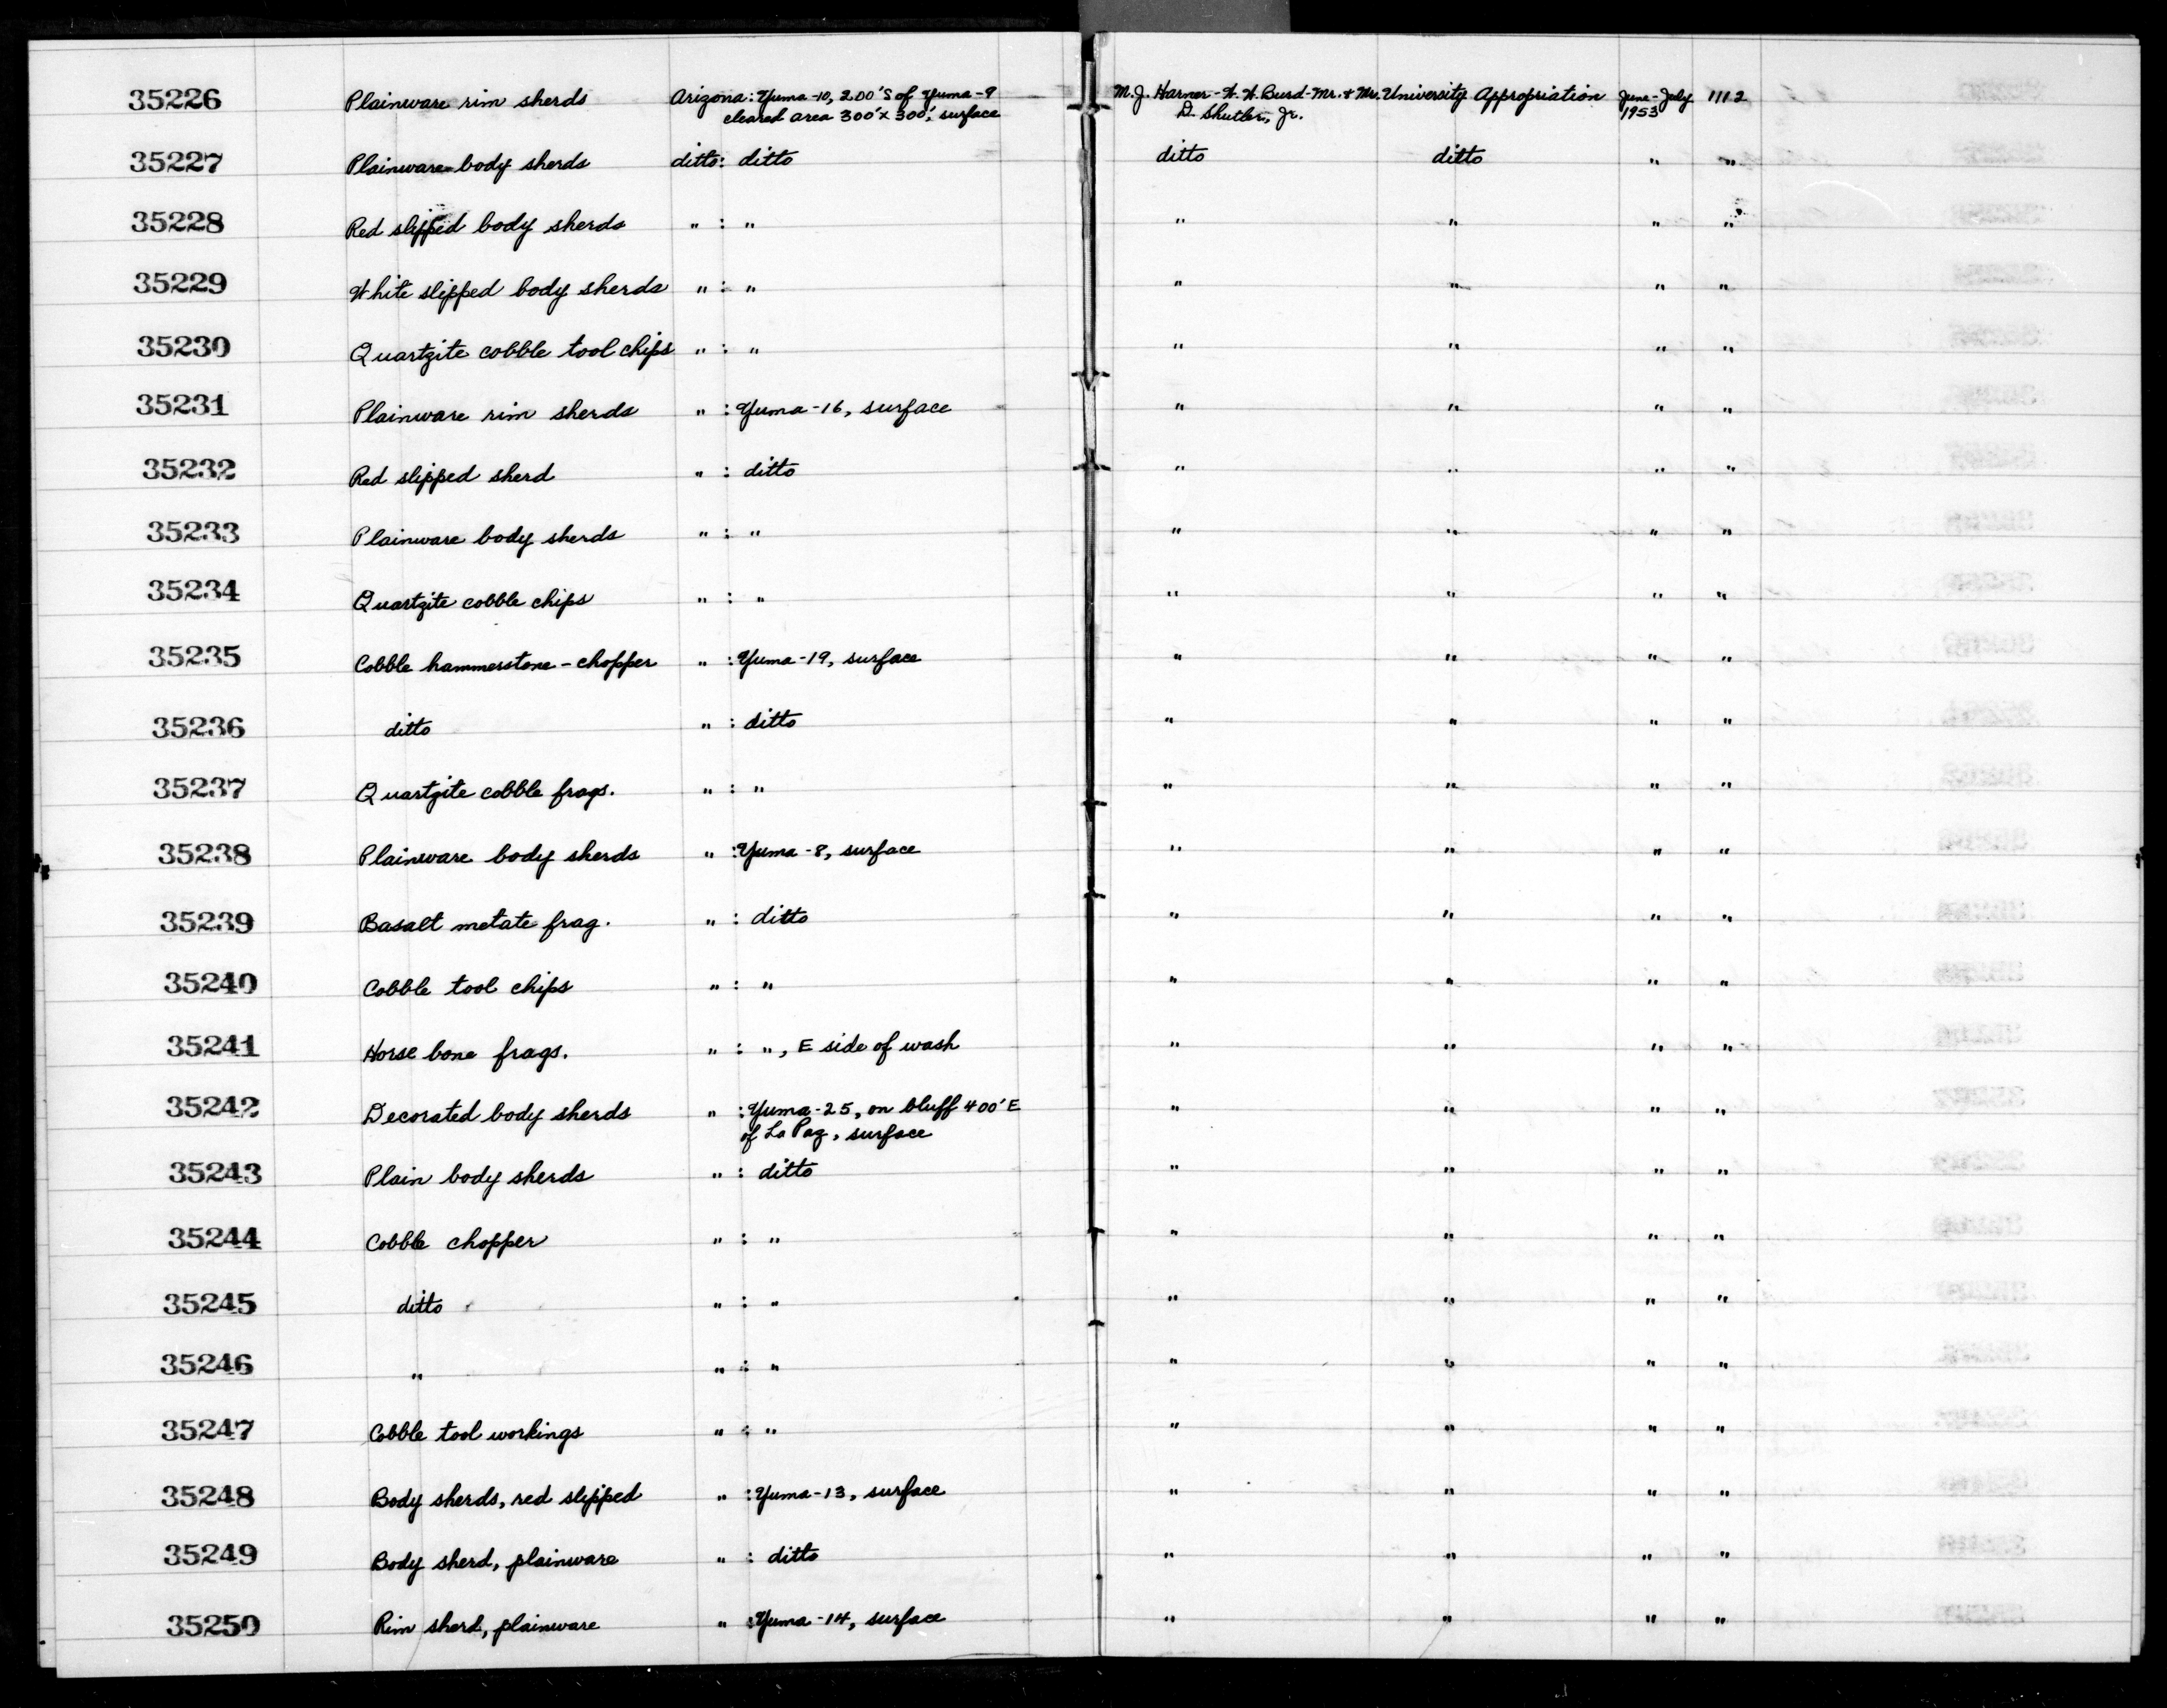 35226 Plainware rim sherds Arizona: Yuma-10, 200'S of Yuma-9 M.J. Harner-W.W. Burd-Mr.+Mr. University Appropriation June-July 1112
cleared area 300'x300', surface D. Shutler, Jr. 1953
35227 Plainware body sherds ditto: ditto ditto ditto " "
35228 Red slipped body sherds " : " " " " "
35229 White slipped body sherds " : " " " " "
35230 Quartzite cobble tool chips " : " " " " "
35231 Plainware rim sherds " : Yuma-16, surface " " " "
35232 Red slipped sherd " : ditto " " " "
35233 Plainware body sherds " : " " " " "
35234 Quartzite cobble chips " : " " " " "
35235 Cobble hammerstone-chopper " : Yuma-19, surface " " " "
35236 ditto " : ditto " " " "
35237 Quartzite cobble frags. " : " " " " "
35238 Plainware body sherds " : Yuma-8, surface " " " "
35239 Basalt metate frag. " : ditto " " " "
35240 Cobble tool chips " : " " " " "
35241 Horse bone frags. " : ", E side of wash " " " "
35242 Decorated body sherds " : Yuma-25, on bluff 400'E " " " "
of La Paz, surface
35243 Plain body sherds " : ditto " " " "
35244 Cobble chopper " : " " " " "
35245 ditto " : " " " " "
35246 " " : " " " " "
35247 Cobble tool workings " : " " " " "
35248 Body sherds, red slipped " : Yuma-13, surface " " " "
35249 Body sherd, plainware " : ditto " " " "
35250 Rim sherd, plainware " : Yuma-14, surface " " " "